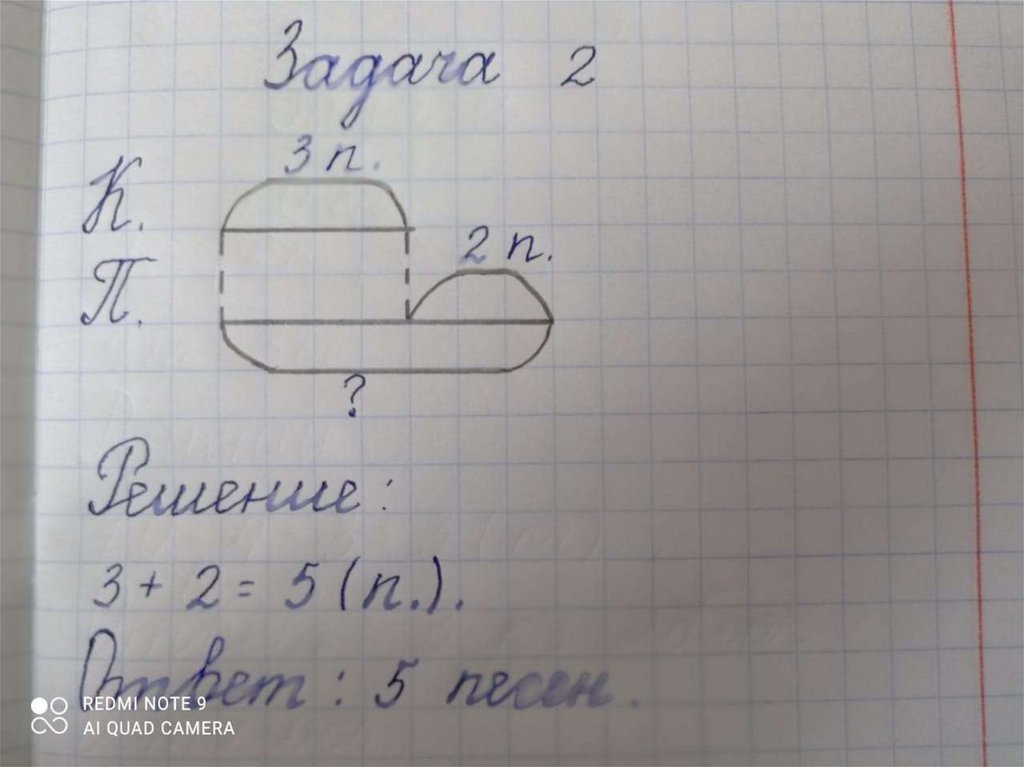 Задача 2
3 п.
К.
2 п.
П.
?
Решение:
3 + 2 = 5 (п.).
Ответ: 5 песен.
REDMI NOTE 9
AI QUAD CAMERA